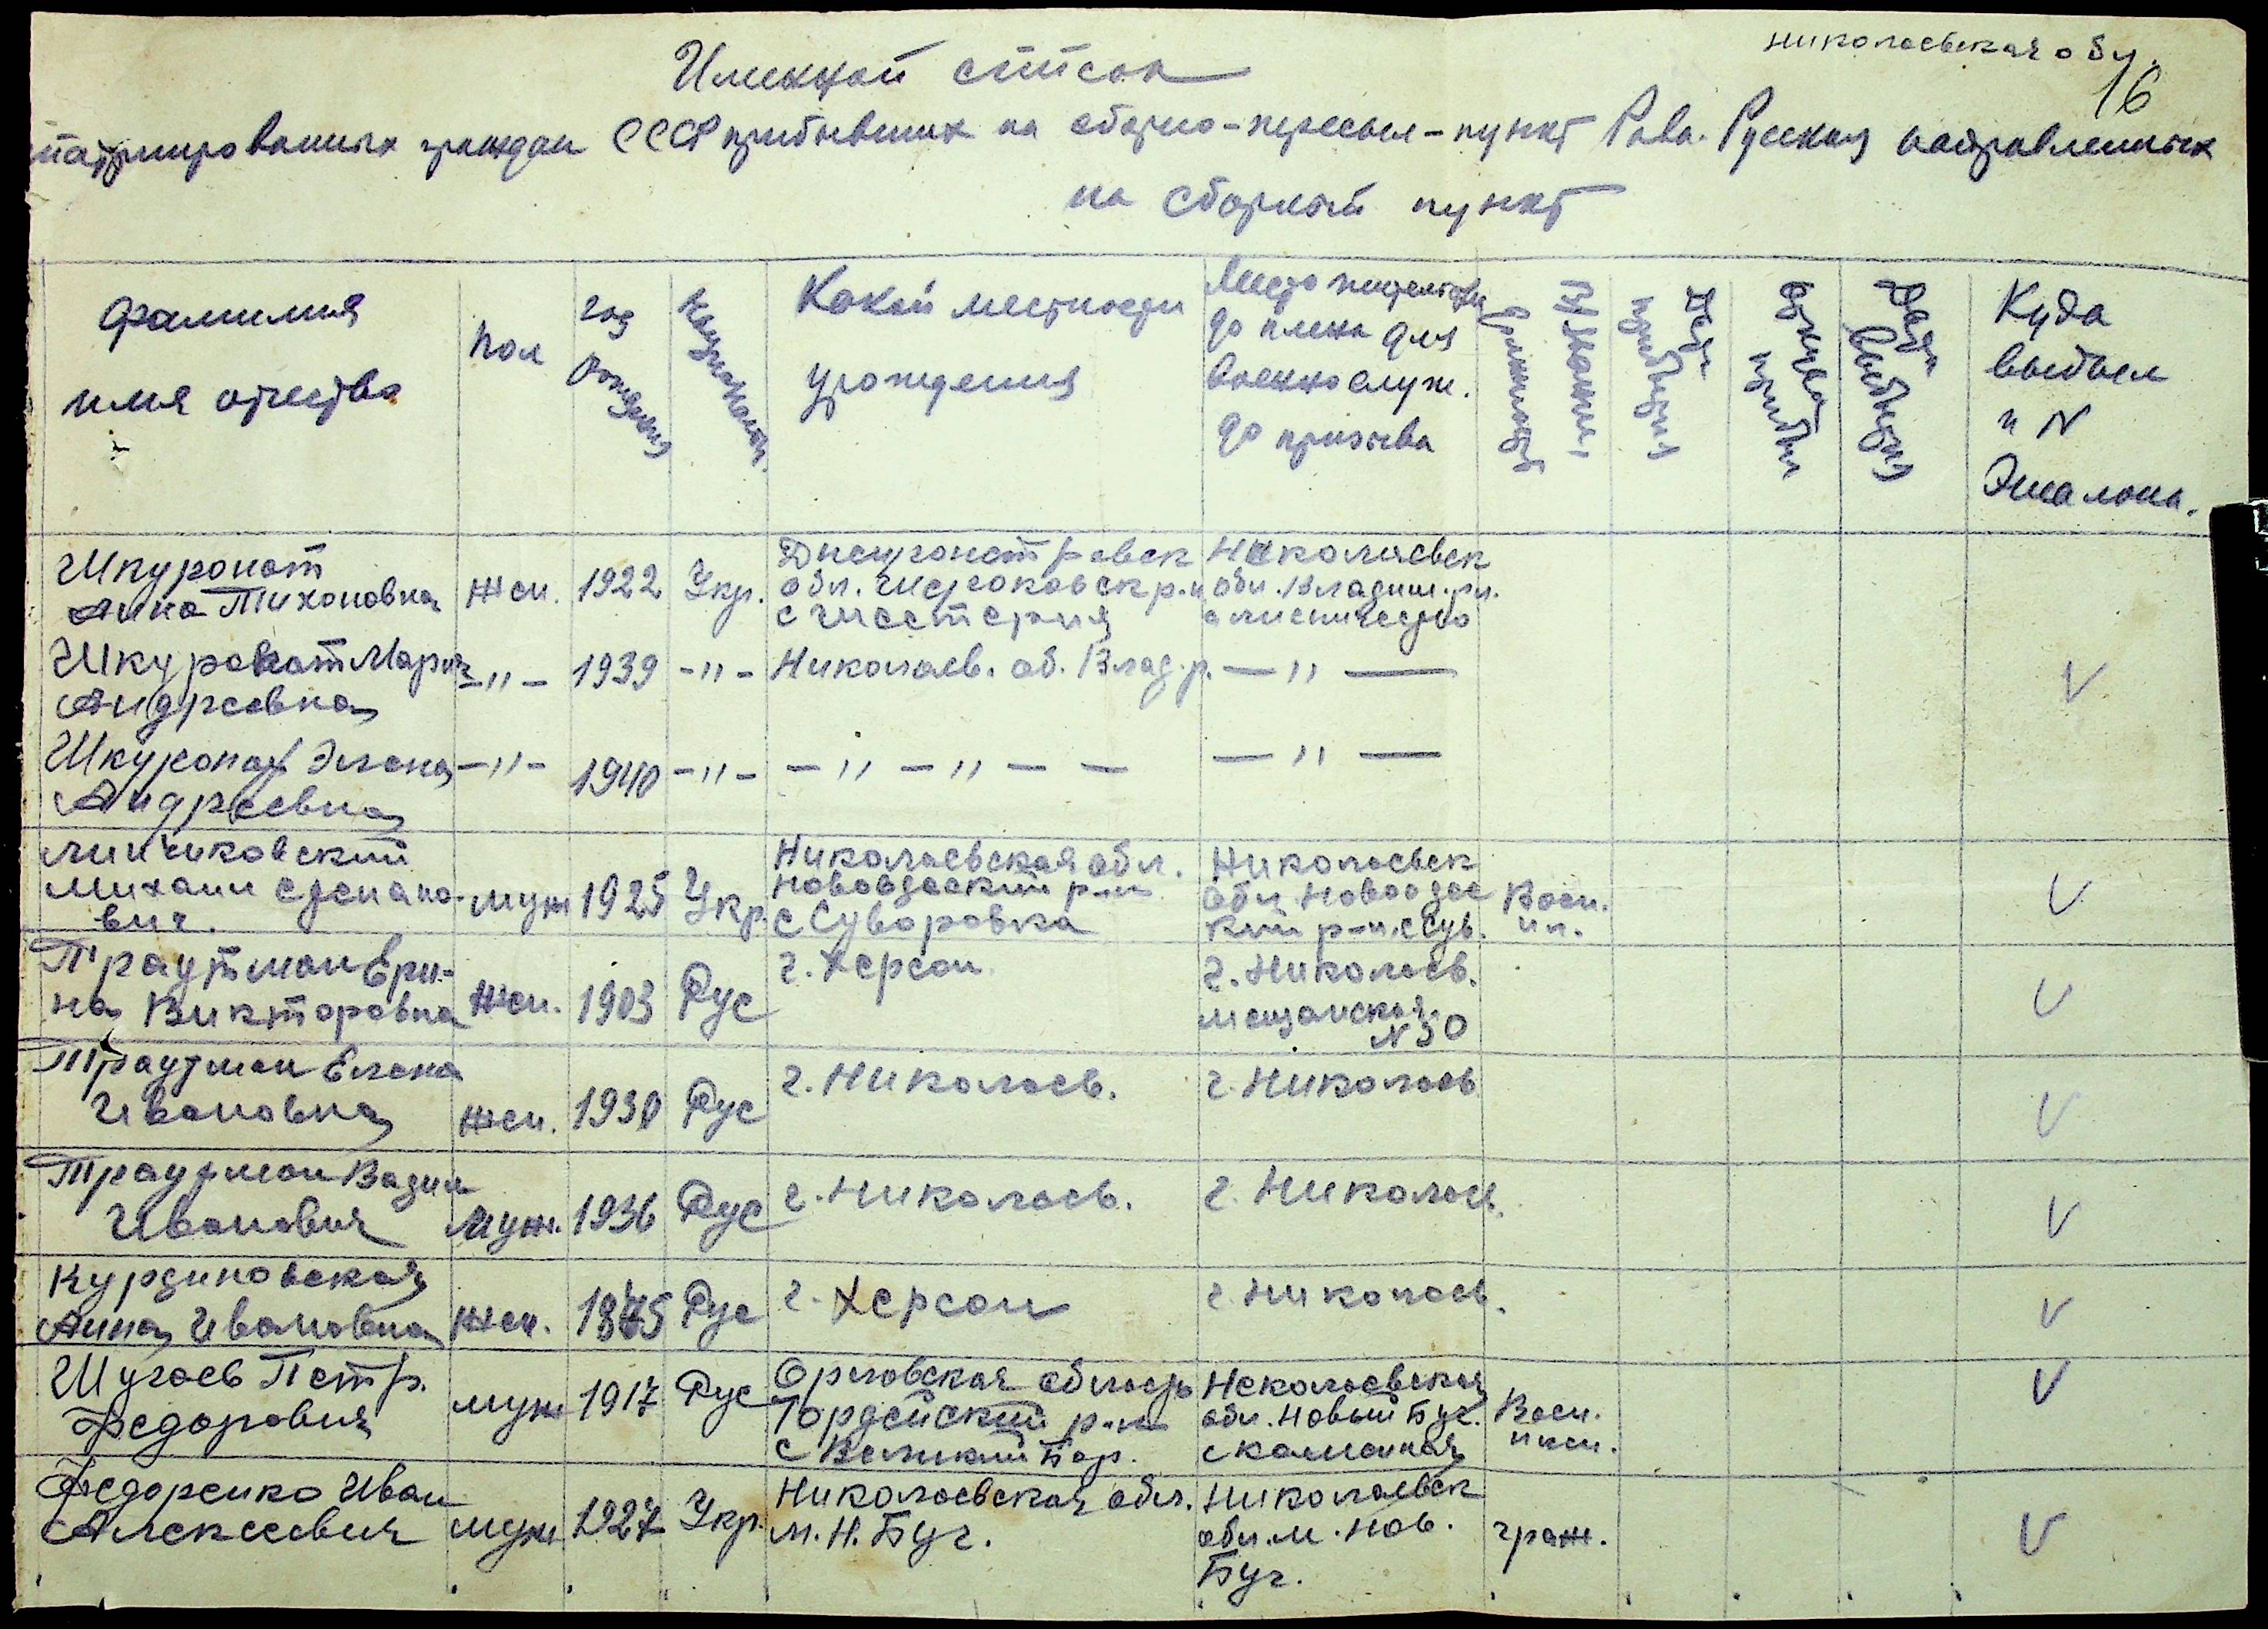 Николаевская обл.
16
Именной список
патриированных граждан СССР прибывших на сборно-пересыл-пункт Рава-Русская направленных
на сборный пункт
Фамилия
имя отчество
Пол
год рождения
Национальность
Какой местности
урождения
Место жительства
до плена для
военнослуж.
до призыва
Дата прибытия
Откуда прибыл
Дата выбытия
Куда
выбыл
и N
Эшалона.
Шкуропат
Анна Тихоновна
жен.
1922
Укр.
Днепропетровск
обл.
с
Николаевск
обл. Владим. р.н.
Шкуропат Мария
Андреевна
-"-
1939
-"-
Николаев. об. Влад. р.
-"-
V
Шкуропат Элена
Андреевна
-"-
1940
-"-
-"-"-
-"-
Линчиковский
Михаил Степано-
вич.
муж
1925
Укр.
Николаевская обл.
Новоодеский р-н
с Суворовка
Николаевск
обл Новоодес
кий р-н. с Сув.
Воен.
пл.
V
Траутман Ери-
на Викторовна
жен.
1903
Рус
г. Херсон.
г. Николаев.
мещанская
N 50
V
Траутман Елена
Ивановна
жен.
1930
Рус
г. Николаев.
г. Николаев
V
Траутман Вадим
Иванович
муж.
1936
Рус
г. Николаев.
г. Николаев.
V
Курдиновская
Анна Ивановна
жен.
Рус
г. Херсон
г. Николаев.
V
Шугаев Петр.
Федорович
муж
1917
Рус
Орловская область
р-н
с Великий Бор.
Неколаевская
обл. Новый Буг.
с Каменная
Воен.
плен.
V
Федоренко Иван
Алексеевич
муж
1927
Укр.
Николаевская обл.
м. Н. Буг.
Николаевск
обл. м. Нов.
Буг.
граж.
V